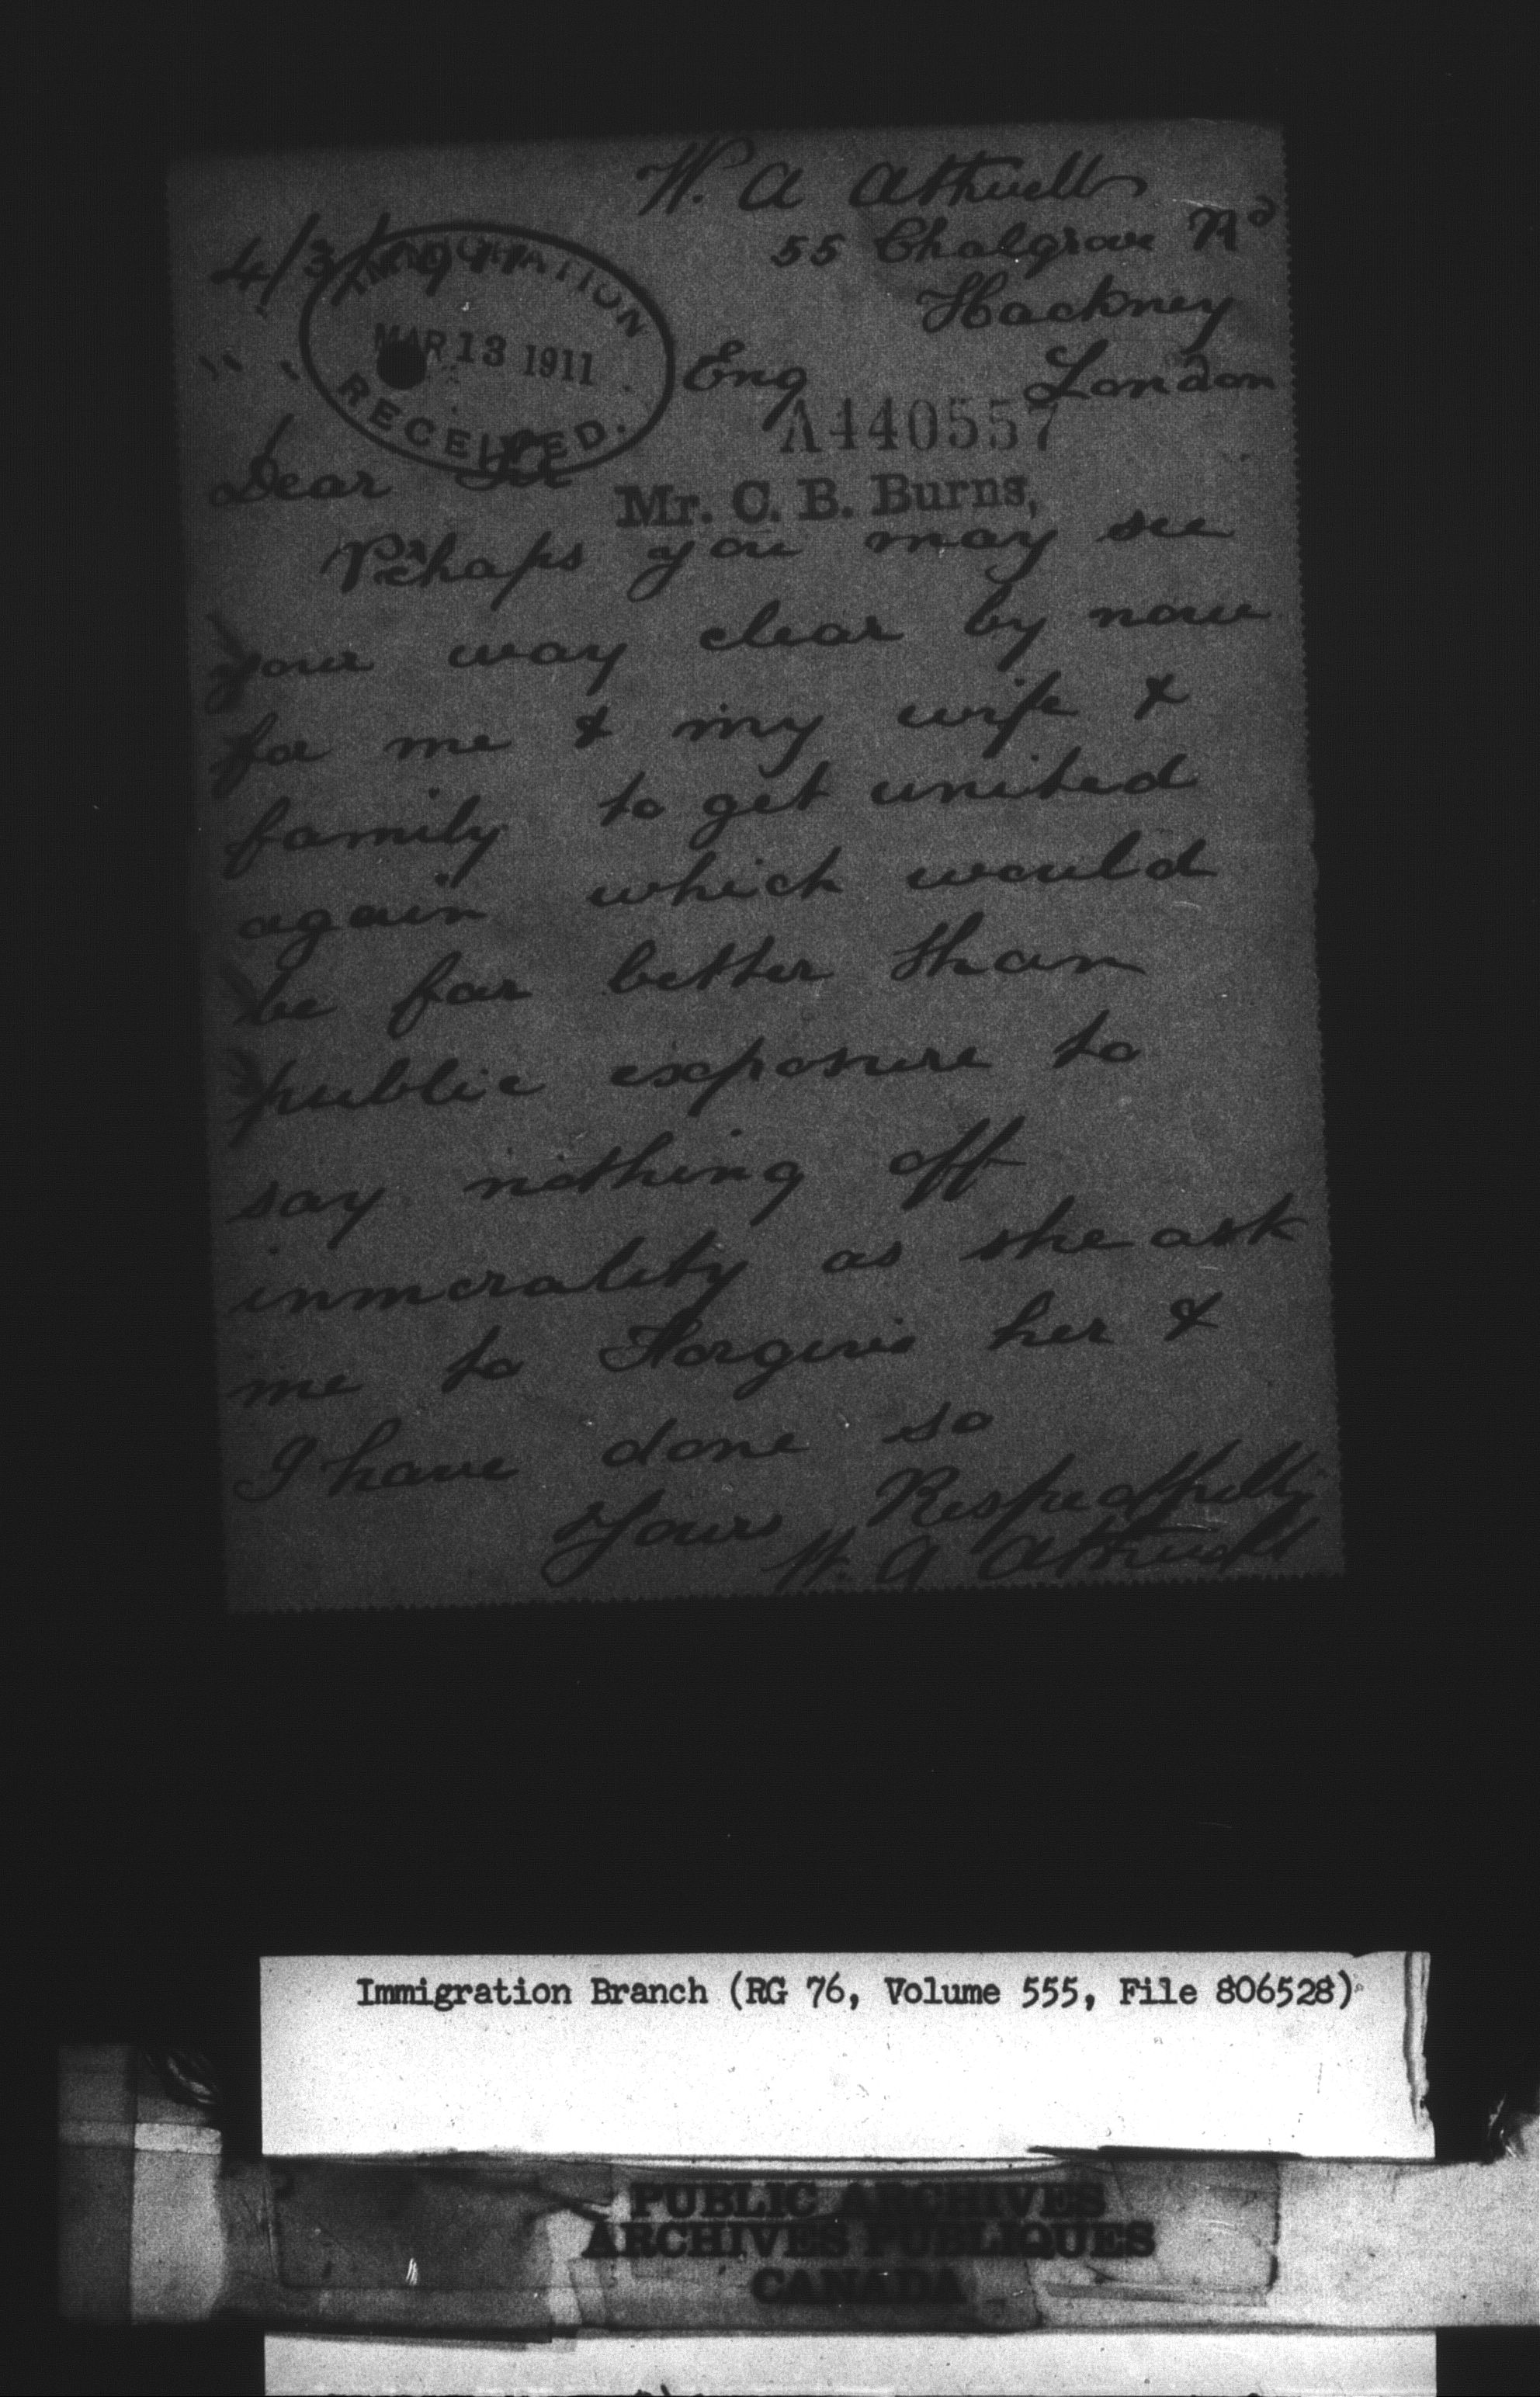 W. A Attwell
55 Chalgrove Rd
4/3/1911
Hackney
IMMIGRATION
MAR 13 1911
RECEIVED.
Eng London
A440557
Dear Sir
Mr. C. B. Burns,
Perhaps you may see
your way clear by now
for me & my wife &
family to get united
again which would
be far better than
public exposure to
say nothing off
inmorality as she ask
me to Forgive her &
I have done so
Yours Respectfully
W. A Attwell
Immigration Branch (RG 76, Volume 555, File 806528)
PUBLIC ARCHIVES
ARCHIVES PUBLIQUES
CANADA